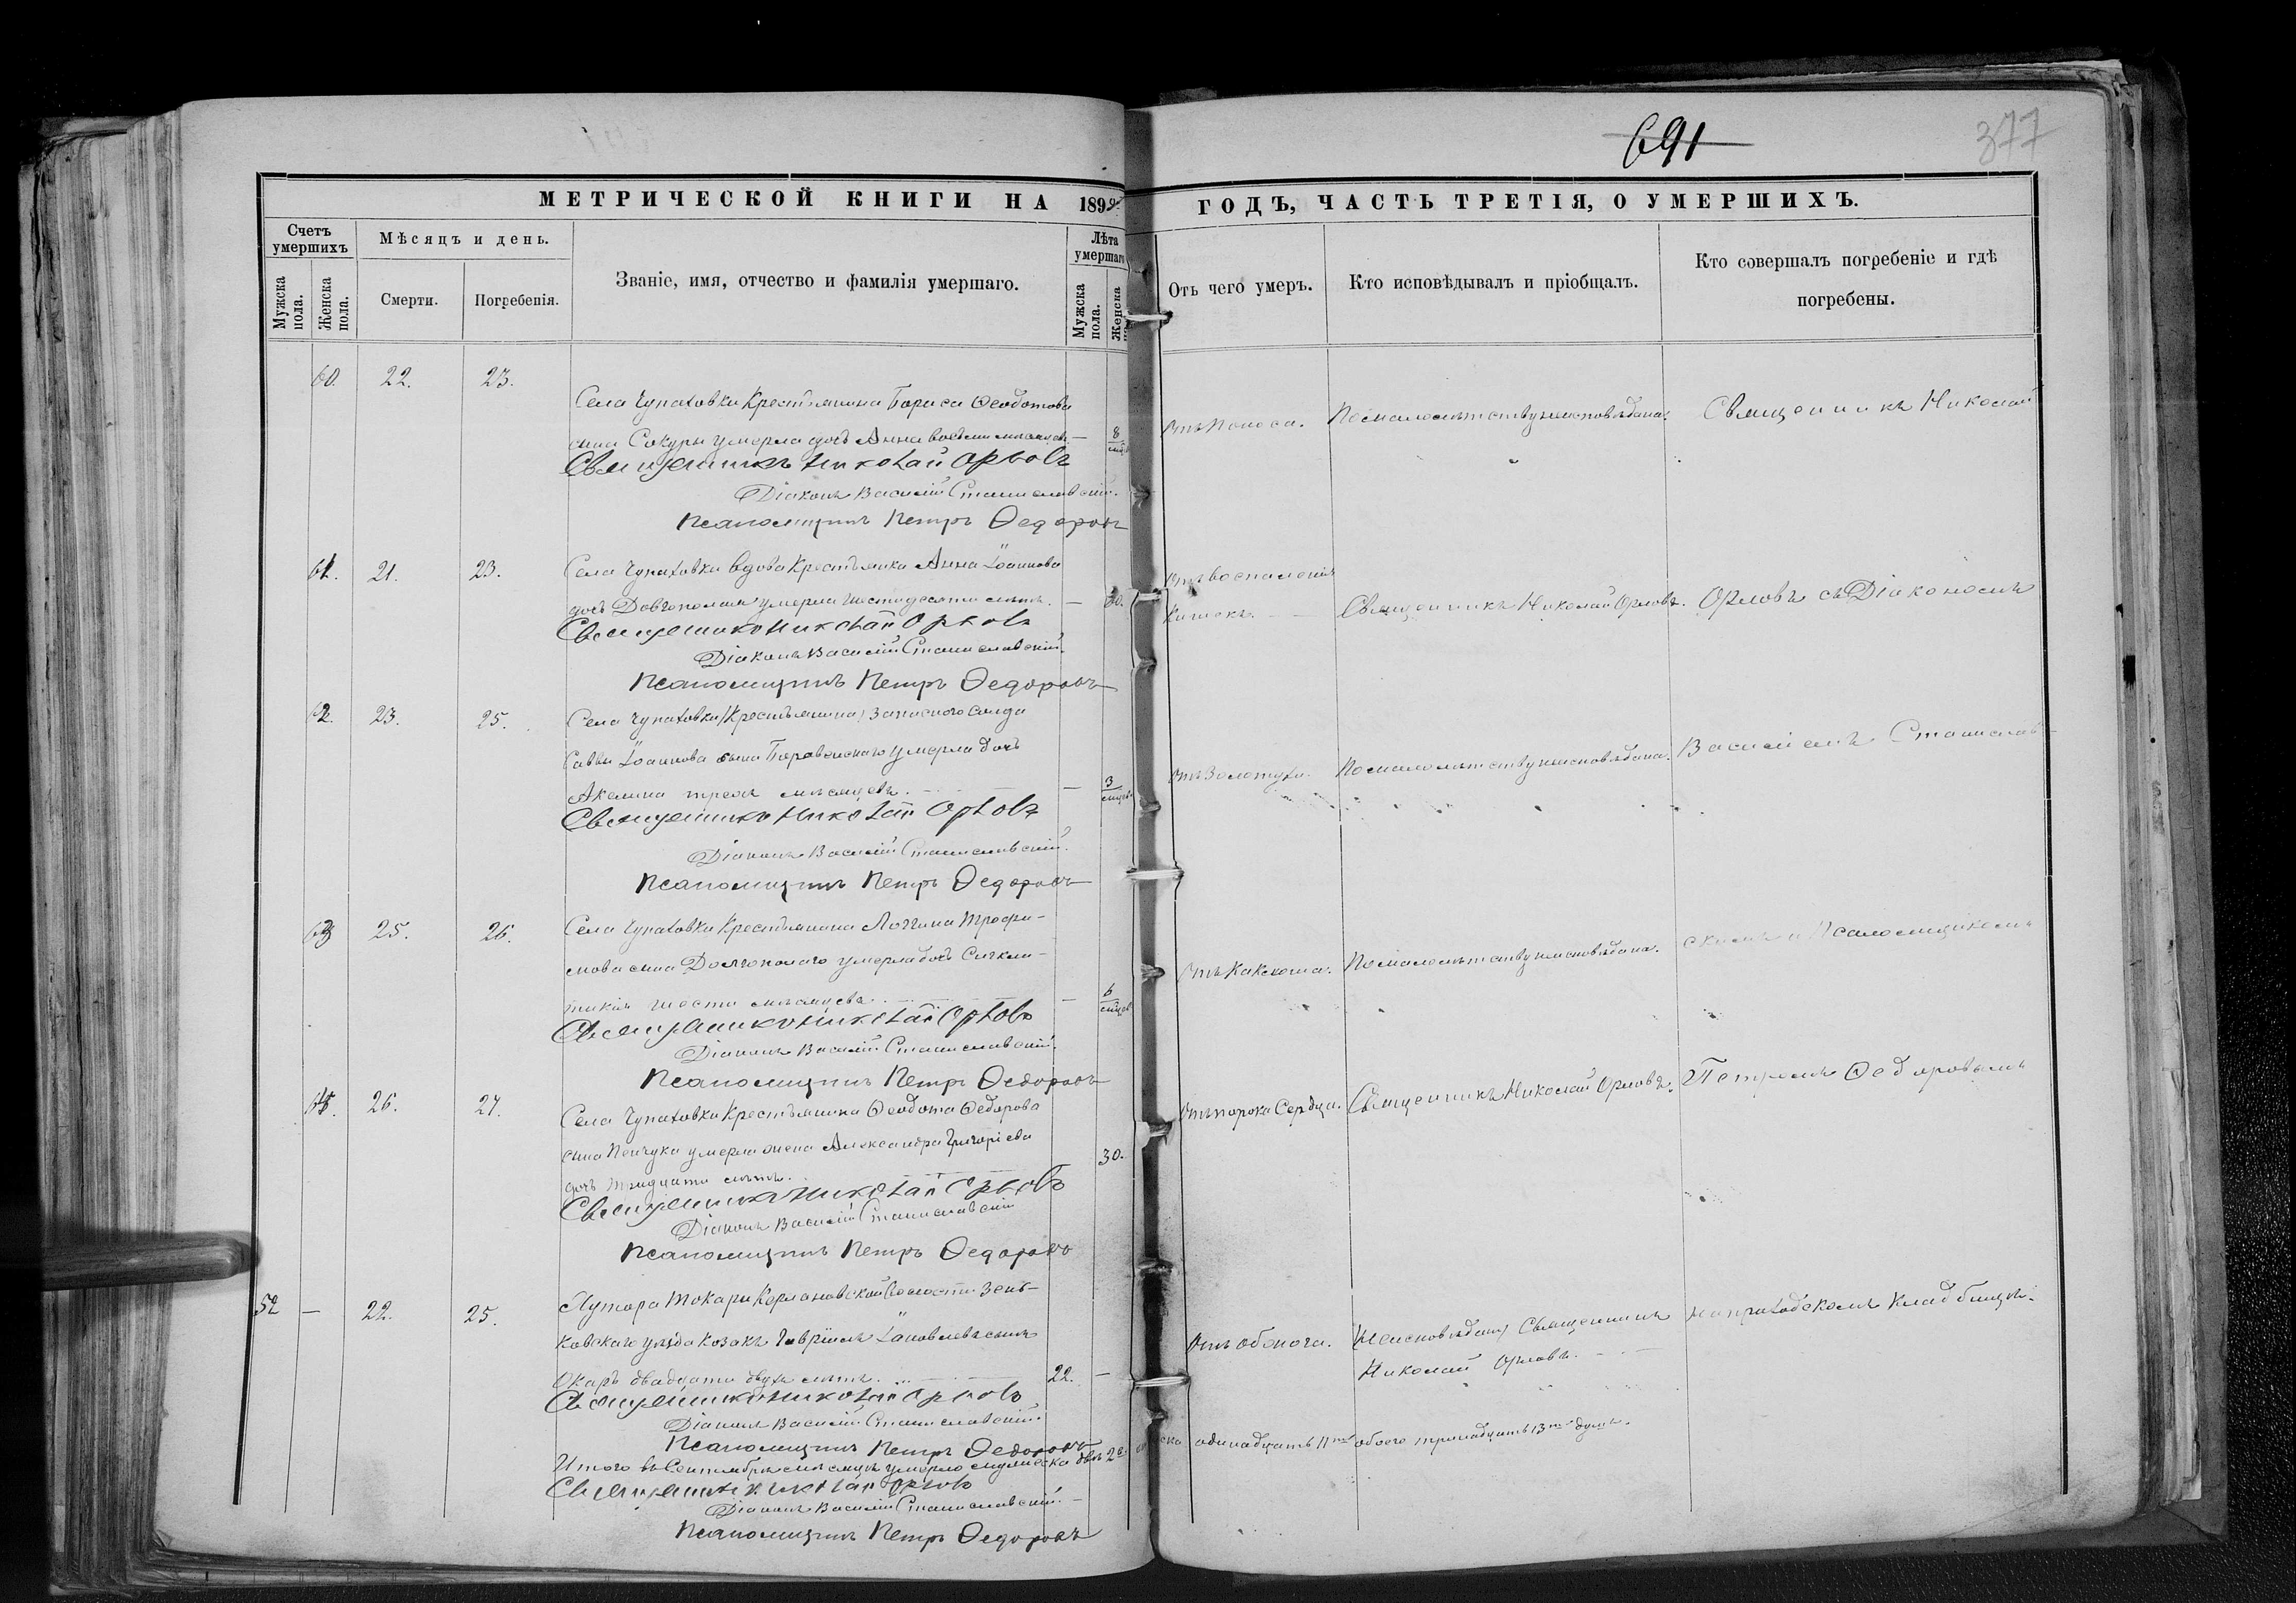 691
377
МЕТРИЧЕСКОЙ КНИГИ НА 1899 ГОДЪ, ЧАСТЬ ТРЕТІЯ, О УМЕРШИХЪ.
Счетъ умершихъ
Мужска пола.
Женска пола.
Мѣсяцъ и день.
Смерти.
Погребенія.
Званіе, имя, отчество и фамилія умершаго.
Лѣта умершаго
Мужска пола.
Женска
Отъ чего умеръ.
Кто исповѣдывалъ и пріобщалъ.
Кто совершалъ погребеніе и гдѣ
погребены.
60. 22. 23.
Села Чупаховки Крестьянина Бориса Ѳеодотова
сына Сакуры умерла дочь Анна восьми мѣсяцевъ — 8
Отъ поноса. По малолѣтству неисповѣдана. Священникъ Николай
Священникъ Николай Орловъ
Діаконъ Василій Станиславскій.
Псаломщикъ Петръ Ѳедоровъ
61. 21. 23.
Села Чупаховки вдова Крестьянка Анна Іоаннова
дочь Довгополая умерла шестидесяти лѣтъ. — 60.
Отъ воспаленія
Кишекъ. Священникъ Николай Орловъ. Орловъ съ Діакономъ
Священникъ Николай Орловъ
Діаконъ Василій Станиславскій.
Псаломщикъ Петръ Ѳедоровъ
62. 23. 25.
Села Чупаховки (Крестьянина) Запасного Солда
Саввы Іоаннова сына Боровенскаго умерла дочь
Акелина трехъ мѣсяцевъ. — 3
Отъ Золотухи. По малолѣтству неисповѣдана. Василіемъ Станислав-
Священникъ Николай Орловъ
Діаконъ Василій Станиславскій.
Псаломщикъ Петръ Ѳедоровъ
63 25. 26.
Села Чупаховки Крестьянина Логгина Трофи-
мова сына Долгополаго умерла дочь Сигкли-
тикія шести мѣсяцевъ. — 6
По малолѣтству неисповѣдана. скимъ и Псаломщикомъ
Священникъ Николай Орловъ
Діаконъ Василій Станиславскій.
Псаломщикъ Петръ Ѳедоровъ
64. 26. 27.
Села Чупаховки Крестьянина Ѳеодота Ѳедорова
сына Пенчука умерла жена Александра Григоріева
дочь тридцати лѣтъ. 30.
Отъ порока Сердца. Священникъ Николай Орловъ. Петромъ Ѳедоровымъ
Священникъ Николай Орловъ
Діаконъ Василій Станиславскій
Псаломщикъ Петръ Ѳедоровъ
52 — 22. 25.
Хутора Токари волости Зень-
ковскаго уѣзда козакъ Гавріилъ Іаковлевъ сынъ
Окаръ двадцати двухъ лѣтъ. 22. —
Неисповѣданъ Священникъ на приходскомъ кладбищѣ.
Николай Орловъ.
Священникъ Николай Орловъ
Діаконъ Василій Станиславскій.
Псаломщикъ Петръ Ѳедоровъ
Итого въ Сентябрѣ мѣсяцѣ умерло мужеска двое 2е одинадцать 11ть обоего тринадцать 13ть душъ.
Священникъ Николай Орловъ
Діаконъ Василій Станиславскій.
Псаломщикъ Петръ Ѳедоровъ